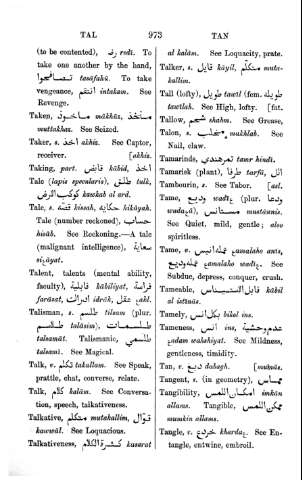 TAL 973 TAN
(to be contented), رضى redī. To
take one another by the hand,
تصافحوا tasāfahū. To take
vengeance, انتقم intakam. See
Revenge.
Taken, ماخوذ mākhūs, متخذ
muttakhas. See Seized.
Taker, s. اخذ akhis. See Captor,
receiver. [akhis.
Taking, part. قابض kābid, اخذ
Tale (lapis specularis), طلق tulk,
كوكب الارض kawkab al ard.
Tale, s. قصة kissah, حكاية hikāyah.
Tale (number reckoned), حساب
hisāb. See Reckoning.—A tale
(malignant intelligence), سعاية
siɛāyat.
Talent, talents (mental ability,
faculty), قابلية kābilīyat, فراسة
farāsat, ادراك idrāk, عقل ɛakl.
Talisman, s. طلسم tilsam (plur.
طلاسم talāsim), طلسمات
talsamāt. Talismanic, طلسمي
talsamī. See Magical.
Talk, v. تكلم takallam. See Speak,
prattle, chat, converse, relate.
Talk, كلام kalām. See Conversa-
tion, speech, talkativeness.
Talkative, متكلم mutakallim, قوال
kawwāl. See Loquacious.
Talkativeness, كثرة الكلام kasarat
al kalām. See Loquacity, prate.
Talker, s. قايل kāyil, متكلم muta-
kallim.
Tall (lofty), طويل tawīl (fem. طويلة
tawīlah. See High, lofty. [fat.
Tallow, شحم shahm. See Grease,
Talon, s. مخلب mukhlab. See
Nail, claw.
Tamarinds, تمر هندي tamr hindī.
Tamarisk (plant), طرفا tarfā, اثل
Tambourin, s. See Tabor. [asl.
Tame, وديع wadīɛ (plur. ودعا
wadaɛā), مستانس mustānnis.
See Quiet, mild, gentle; also
spiritless.
Tame, v. عمله انيس ɛamalaho anīs,
عمله وديع ɛamalaho wadīɛ. See
Subdue, depress, conquer, crush.
Tameable, قابل الاستيناس kābil
al istīnās.
Tamely, بكل انس bikul ins.
Tameness, انس ins, عدم وحشية
ɛadam wahshīyat. See Mildness,
gentleness, timidity.
Tan, v. دبغ dabagh. [mumās.
Tangent, s. (in geometry), مماس
Tangibility, امكان اللمس imkān
allams. Tangible, ممكن اللمس
mumkin allams.
Tangle, v. خردع khardaɛ. See En-
tangle, entwine, embroil.